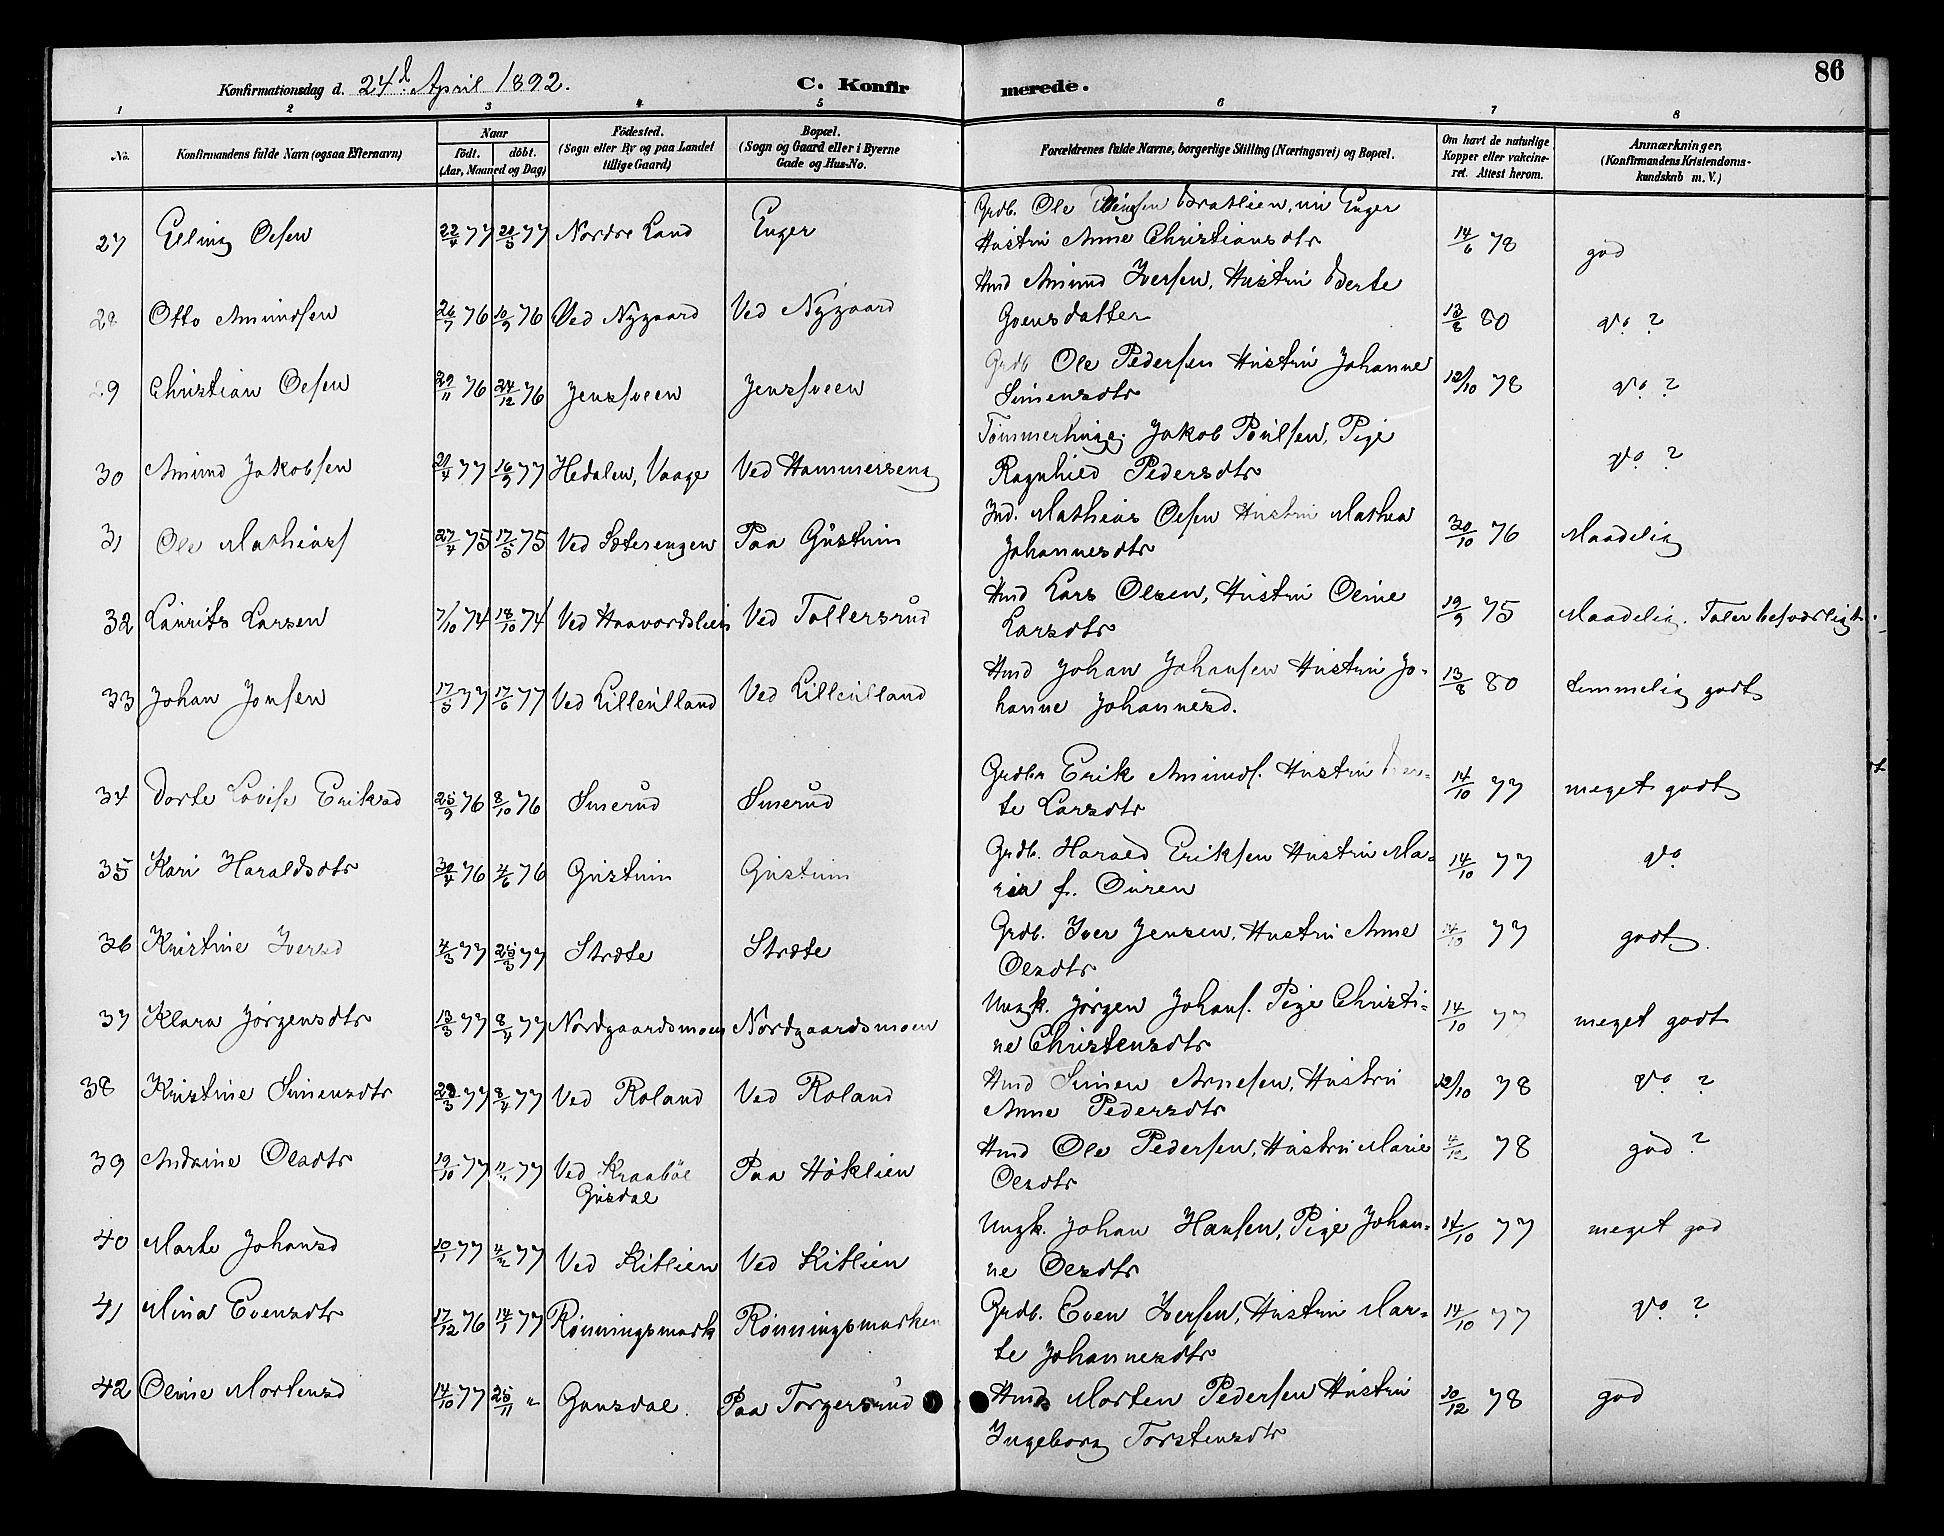 86
Konfirmationsdag d. 24d April 1892. C. Konfirmerede.
1 2 3 4 5 6 7 8
No. Konfirmandens fulde Navn (ogsaa Efternavn) Naar födt. döbt. (Aar, Maaned og Dag) Födested. (Sogn eller By og paa Landet tillige Gaard) Bopæl. (Sogn og Gaard eller i Byerne Gade og Hus-No. Forældrenes fulde Navne, borgerlige Stilling (Næringsvei) og Bopæl. Om havt de naturlige Kopper eller vakcineret. Attest herom. Anmærkninger. (Konfirmandens Kristendomskundskab m. V.)
27 Elling Olsen 22/4 77 /5 77 Nordre Land Enger Grdb. Ole Ellingsen Bratlien, nu Enger
Hustru Anne Christiansdtr 14/6 78 god
28 Otto Amundsen 26/7 76 10/9 76 Ved Nygaard Ved Nygaard Hmd Amund Iversen, Hustru Berte
Goensdatter 13/8 80 do ?
29 Christian Olsen 29/11 76 24/12 76 Jenssveen Jenssveen Grdb Ole Pedersen Hustru Johanne
Simensdtr 12/10 78 do ?
30 Amund Jakobsen 21/4 77 16/9 77 Hedalen, Vaage Ved Hammerseng Tømmerhugg. Jakob Poulsen, Pige
Ragnhild Pedersdtr do ?
31 Ole Mathias 27/4 75 17/5 75 Ved Sæterengen Paa Gustum Ind. Mathias Olsen Hustru Mathea
Johannesdtr 30/10 76 Maadelig
32 Laurits Larsen 7/10 74 18/10 74 Ved Haavordslien Ved Tollersrud Hmd Lars Olsen, Hustru Oline
Larsdtr 19/9 75 Maadelig. Taler besværligt.
33 Johan Jonsen 17/5 77 17/6 77 Ved Lilleulland Ved Lilleulland Hmd Johan Johansen Hustru Jo-
hanne Johannesd. 13/8 80 temmelig godt
34 Dorte Lovise Eriksd 25/9 76 8/10 76 Smerud Smerud Grdbr Erik Amunds. Hustru Ber-
te Larsdtr 14/10 77 meget godt
35 Kari Haraldsdtr 30/4 76 4/6 76 Gustum Gustum Grdb. Harald Eriksen Hustru Ma-
rie f. Ouren 14/10 77 do
36 Kristine Iversd 4/3 77 25/3 77 Stræte Stræte Grdb. Iver Jensen, Hustru Anne
Olsdtr 14/10 77 godt.
37 Klara Jørgensdtr 13/3 77 8/4 77 Nordgaardsmoen Nordgaardsmoen Ungk. Jørgen Johans. Pige Christi-
ne Christensdtr 14/10 77 meget godt
38 Kristine Simensdtr /3 77 8/4 77 Ved Roland Ved Roland Hmd Simen Arnesen, Hustru
Anne Pedersdtr 12/10 78 do ?
39 Andrine Olsdtr 19/10 77 77 Ved Kraabøl
Gusdal Paa Høklien Hmd Ole Pedersen, Hustru Marie
Olsdtr 4/12 78 god ?
40 Marte Johansd 10/1 77 4/2 77 Ved Kitlien Ved Kitlien Ungk. Johan Hansen, Pige Johan-
ne Olsdtr 14/10 77 meget god
41 Mina Evensdtr 17/12 76 14/1 77 Rønningsmark Rønningsmarken Grdb. Even Iversen, Hustru Mar-
te Johannesdtr 14/10 77 do ?
42 Oline Mortensd 14/10 77 25/11 " Gausdal. Paa Torgersrud Hmd Morten Pedersen Hustru
Ingeborg Torstensdtr 10/12 78 god